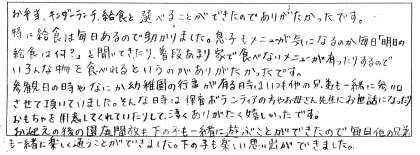 お弁当、キンダーランチ、給食と選べることができたのでありがたかったです。
特に給食は毎日あるので助かりました。息子もメニューが気になるのか毎日「明日の
給食は何?」と聞いてきたり、普段あまり家で食べないメニューが有ったりするので
いろんな物を食べれるというのがありがたかったです。
参観日の時やなにか幼稚園の行事が有る時はいつも他の兄弟も一緒に参加
させて頂いていました。そんな日は保育ボランティアの方やお母さん先生にお世話になったり
おもちゃを用意してくれていたりして、凄くありがたく嬉しいかったです。
お迎えの後の園庭開放も下の子も一緒に遊ぶことができたので毎日他の兄弟
も一緒に楽しく通うことができました。下の子も楽しい思い出ができました。